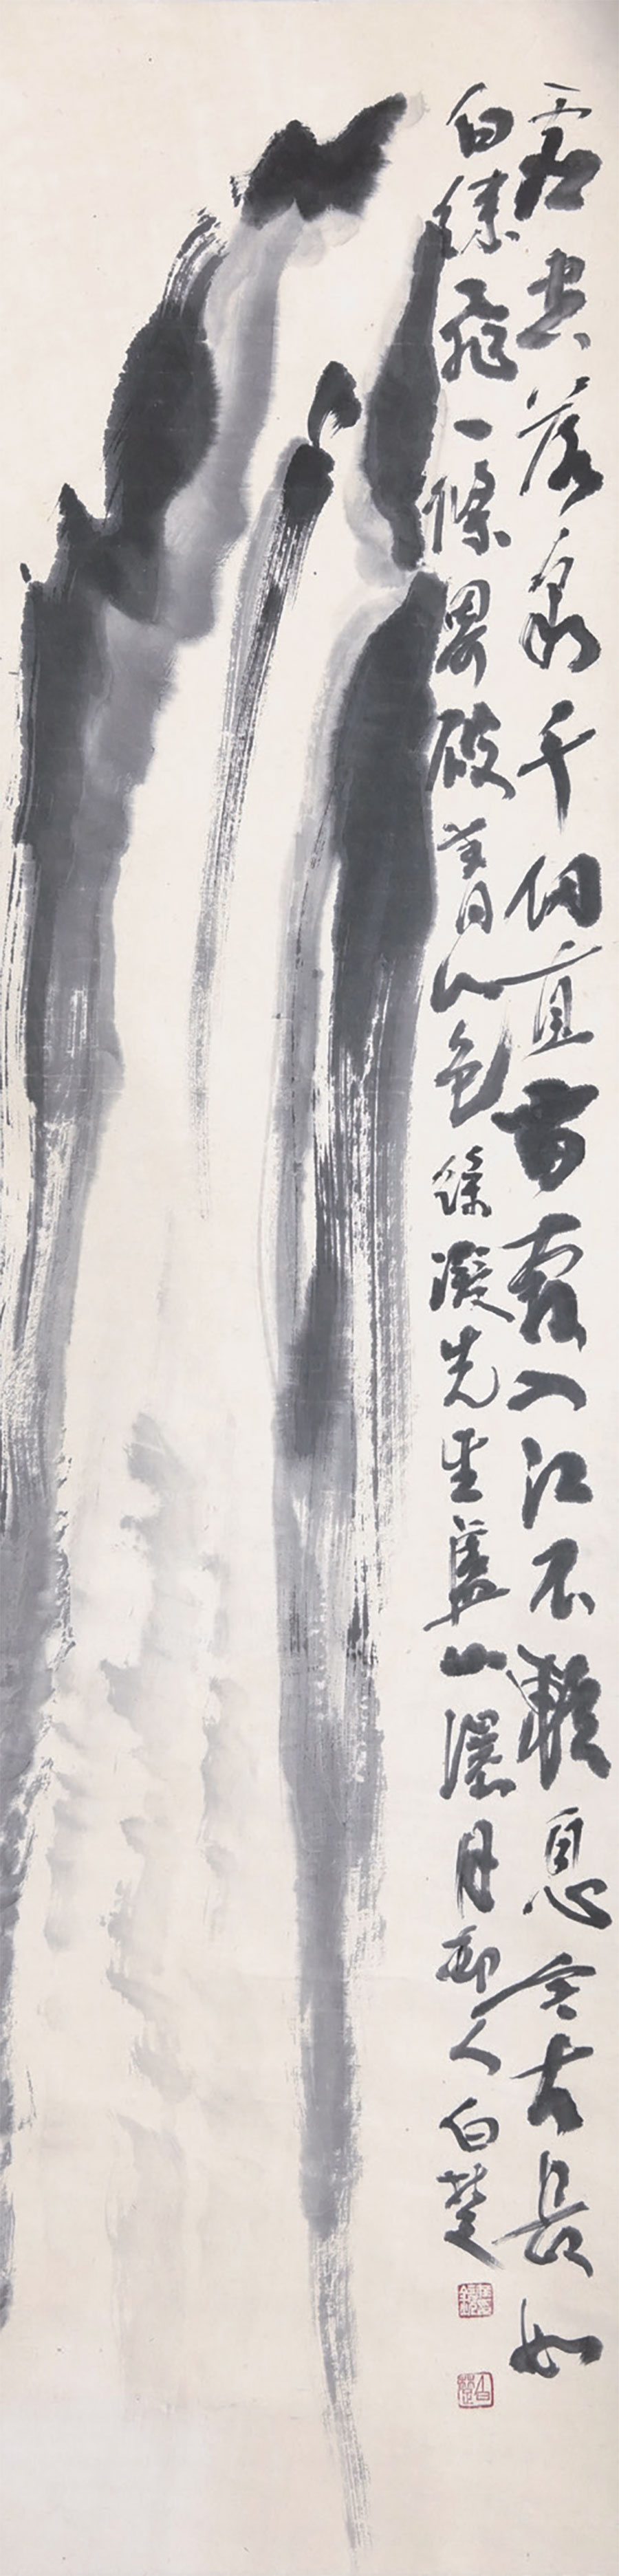 虛空落泉千仞直雷奔入江不暫息今古長如
白練飛一條界破青山色徐凝先生盧山瀑月邨人白楚
白楚